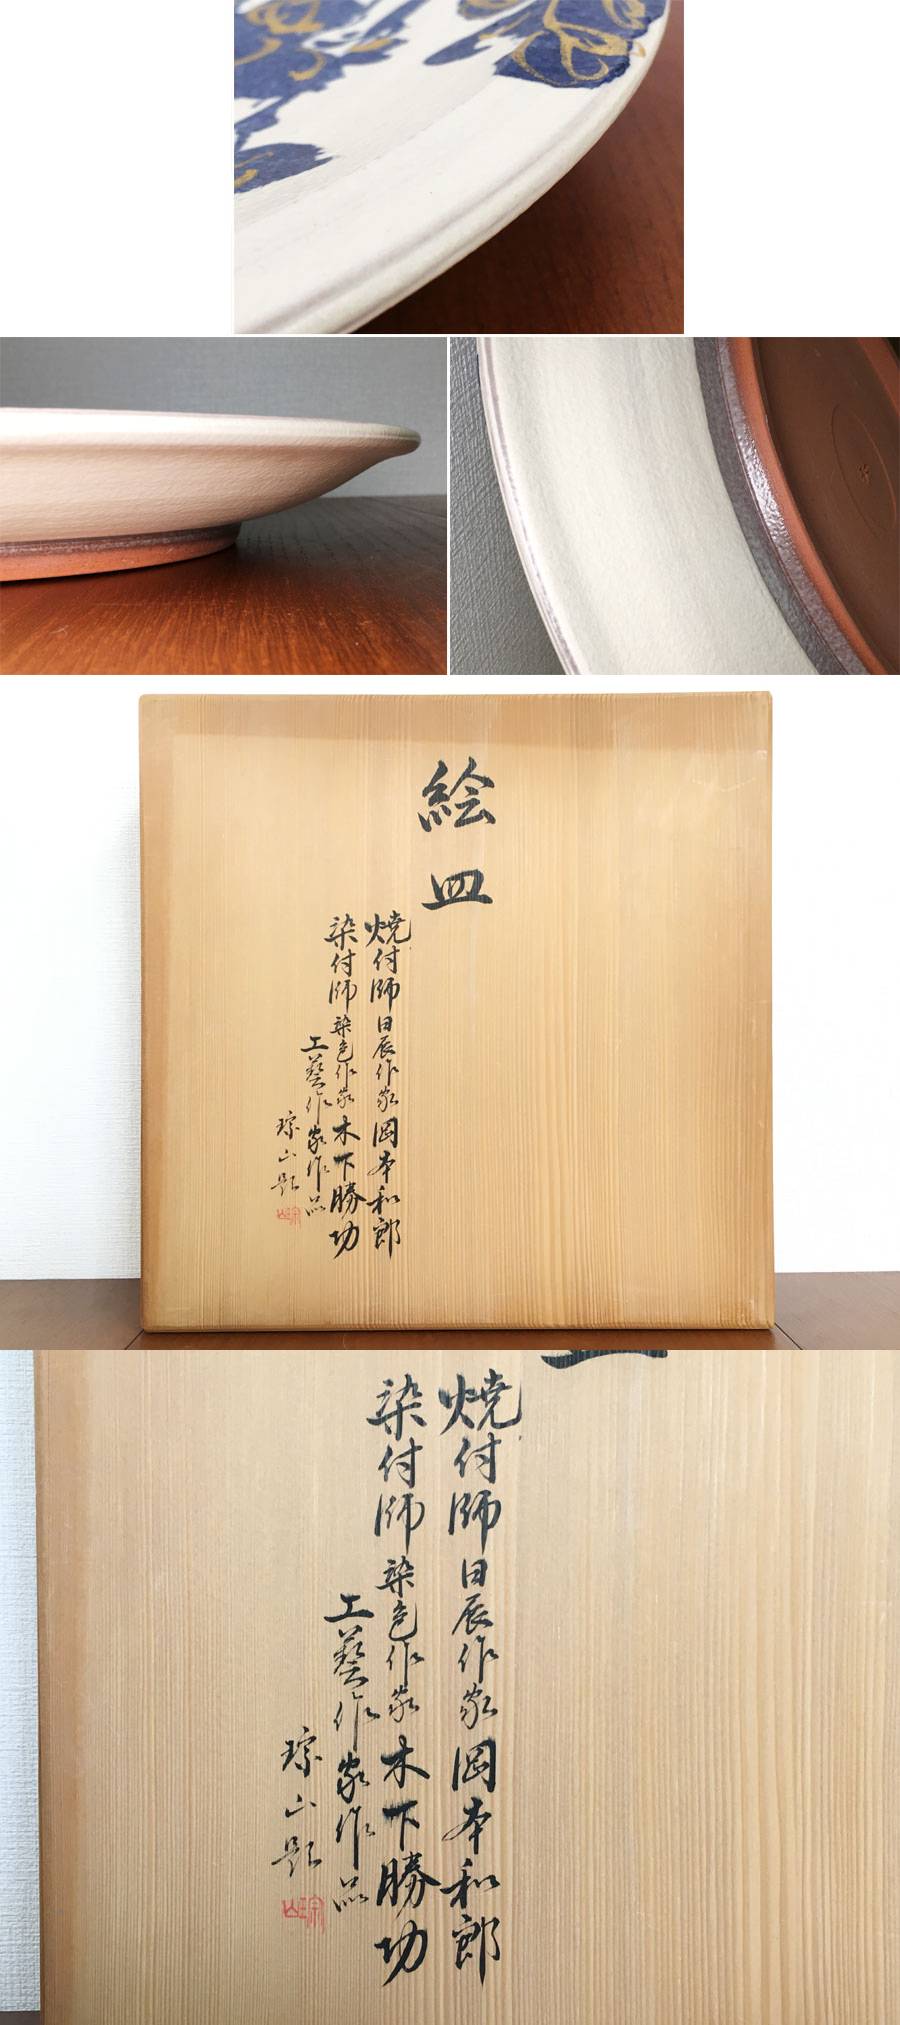 絵皿
焼付師日辰作家岡本和郎
染付師染色作家木下勝功
工藝作家作品
琮山題
焼付師日辰作家岡本和郎
染付師染色作家木下勝功
工藝作家作品
琮山題